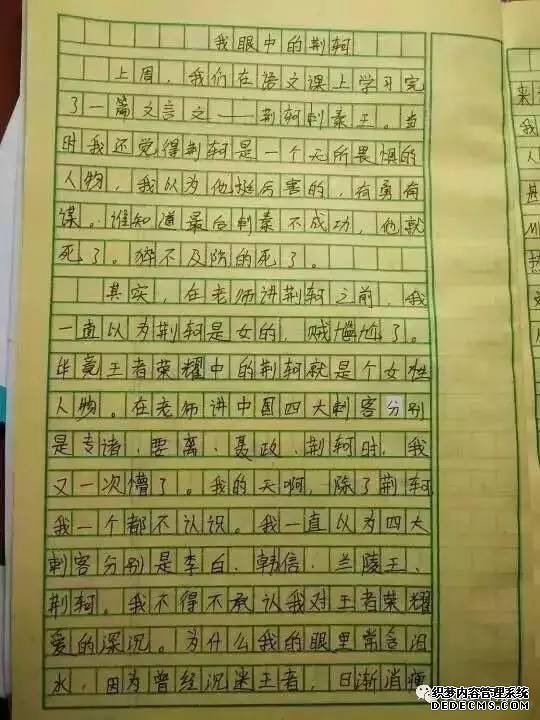 我眼中的荆轲
上周，我们在语文课上学习完
了一篇文言文——荆轲刺秦王。当
时我还觉得荆轲是一个无所畏惧的
人物，我认为他挺厉害的，有勇有
谋。谁知道最后刺秦不成功，他就
死了。猝不及防的死了。
其实，在老师讲荆轲之前，我
一直以为荆轲是女的，贼尴尬了。
毕竟王者荣耀中的荆轲就是个女性
人物。在老师讲中国四大刺客分别
是专诸、要离、聂政、荆轲时，我
又一次懵了。我的天啊，除了荆轲
我一个都不认识。我一直以为四大
刺客分别是李白、韩信、兰陵王、
荆轲。我不得不承认我对王者荣耀
爱的深沉。为什么我的眼里常含泪
水，因为曾经沉迷王者，日渐消瘦
织梦内容管理系统
DEDECMS.COM